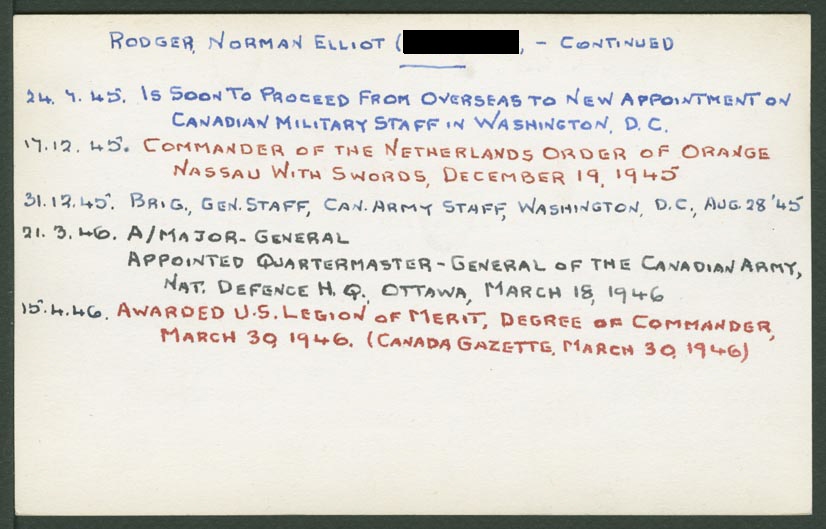 RODGER, NORMAN ELLIOT ( , - CONTINUED
24. 7. 45. IS SOON TO PROCEED FROM OVERSEAS TO NEW APPOINTMENT ON
CANADIAN MILITARY STAFF IN WASHINGTON, D.C.
17.12.45. COMMANDER OF THE NETHERLANDS ORDER OF ORANGE
NASSAU WITH SWORDS, DECEMBER 19, 1945
31.12.45. BRIG., GEN. STAFF, CAN. ARMY STAFF, WASHINGTON, D.C., AUG. 28 '45
21. 3. 46. A/MAJOR-GENERAL
APPOINTED QUARTERMASTER-GENERAL OF THE CANADIAN ARMY,
NAT. DEFENCE H.Q., OTTAWA, MARCH 18, 1946
15.4.46. AWARDED U.S. LEGION OF MERIT, DEGREE OF COMMANDER,
MARCH 30, 1946. (CANADA GAZETTE, MARCH 30, 1946)